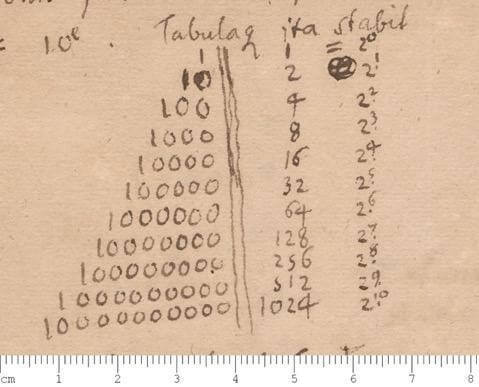 Tabula ita stabit
= 10e . 1 1 = 2^0
10 2 2^1
100 4 2^2
1000 8 2^3
10000 16 2^4
100000 32 2^5
1000000 64 2^6
10000000 128 2^7
100000000 256 2^8
1000000000 512 2^9
10000000000 1024 2^10
cm 1 2 3 4 5 6 7 8